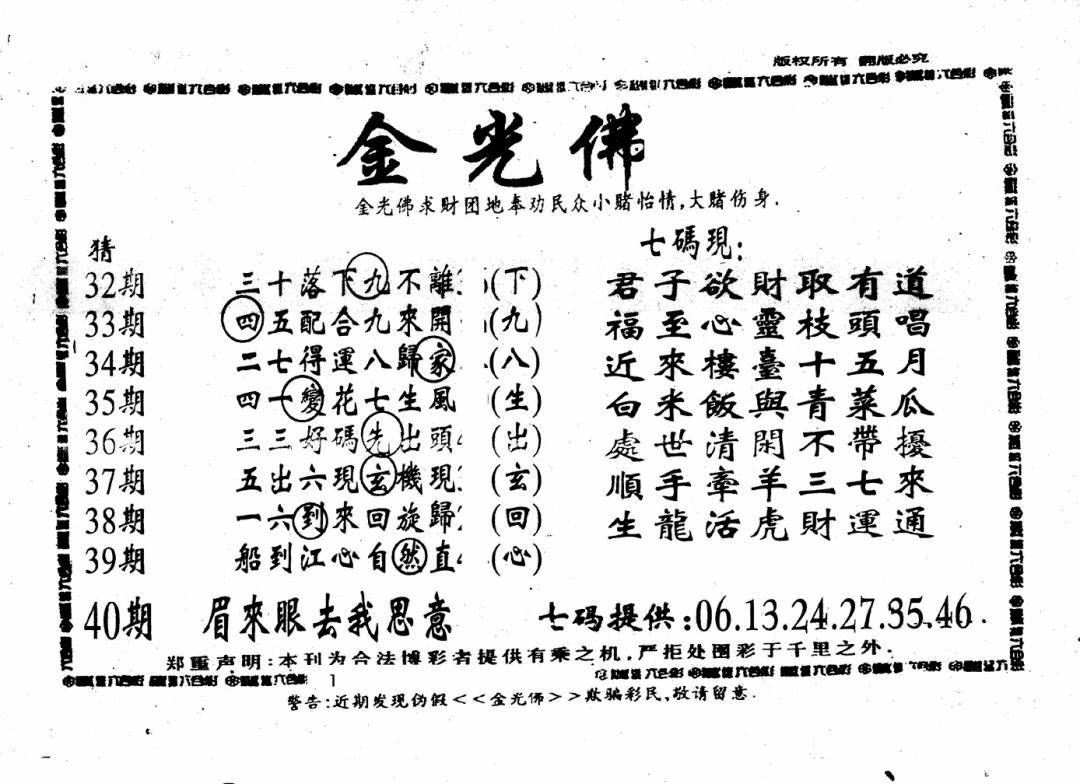 版权所有 翻版必究
金光佛
金光佛求财团地奉劝民众小赌怡情,大赌伤身.
猜
七碼現:
32期 三十落下九不離 (下) 君子欲財取有道
33期 四五配合九來開 (九) 福至心靈枝頭唱
34期 二七得運八歸家 (八) 近來樓臺十五月
35期 四十變花七生風 (生) 白米飯與青菜瓜
36期 三三好碼先出頭 (出) 處世清閑不帶擾
37期 五出六現玄機現 (玄) 順手牽羊三七來
38期 一六到來回旋歸 (回) 生龍活虎財運通
39期 船到江心自然直 (心)
40期 眉來眼去我思意 七码提供:06.13.24.27.35.46.
郑重声明:本刊为合法博彩者提供有乘之机,严拒处圈彩于千里之外.
警告:近期发现伪假<<金光佛>>欺骗彩民,敬请留意.